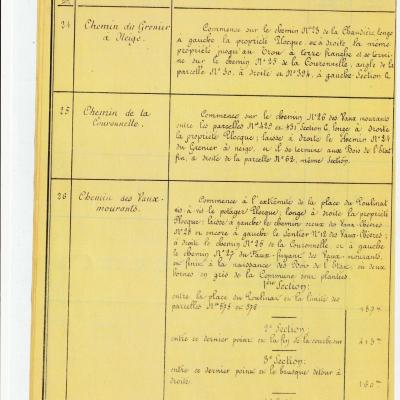 24
Chemin du Grenier
à Neige.
Commence sur le chemin N°23 de la Chaudière, longe
à gauche la propriété Plocque, et à droite, la même
propriété jusqu'au Trou à terre franche et se termi-
ne sur le chemin N°25 de la Couronnelle, angle de la
parcelle N°30, à droite et N°394, à gauche Section C.
25
Chemin de la
Couronnelle.
Commence sur le chemin N°26 des Vaux mourants
entre les parcelles N°429 et 431 Section C, longe à droite
la propriété Plocque; laisse à droite le chemin N°24
du Grenier à neige, et il se termine aux Bois de l'Etat
fin, à droite de la parcelle N°62, même Section.
26
Chemin des Vaux-
mourants.
Commence à l'extrémité de la place du Poulinat
vis à vis le potager Plocque; longe à droite la propriété
Plocque; laisse à gauche le chemin creux des Vaux-Obères
N°28 et encore à gauche le sentier N°12 des Vaux-Obères;
à droite le chemin N°26 de la Couronnelle et à gauche
le chemin N°27 du Vaux-fuyant des Vaux-mourants,
et finit à la naissance des Bois de l'Etat où deux
bornes en grès de la Commune sont plantées.
1ère Section:
entre la place du Poulinat et la limite des
parcelles N°575 et 578
2e Section:
entre ce dernier point et la fin de la courbe sur
3e Section:
entre ce dernier point et le brusque détour à
droite.
160m